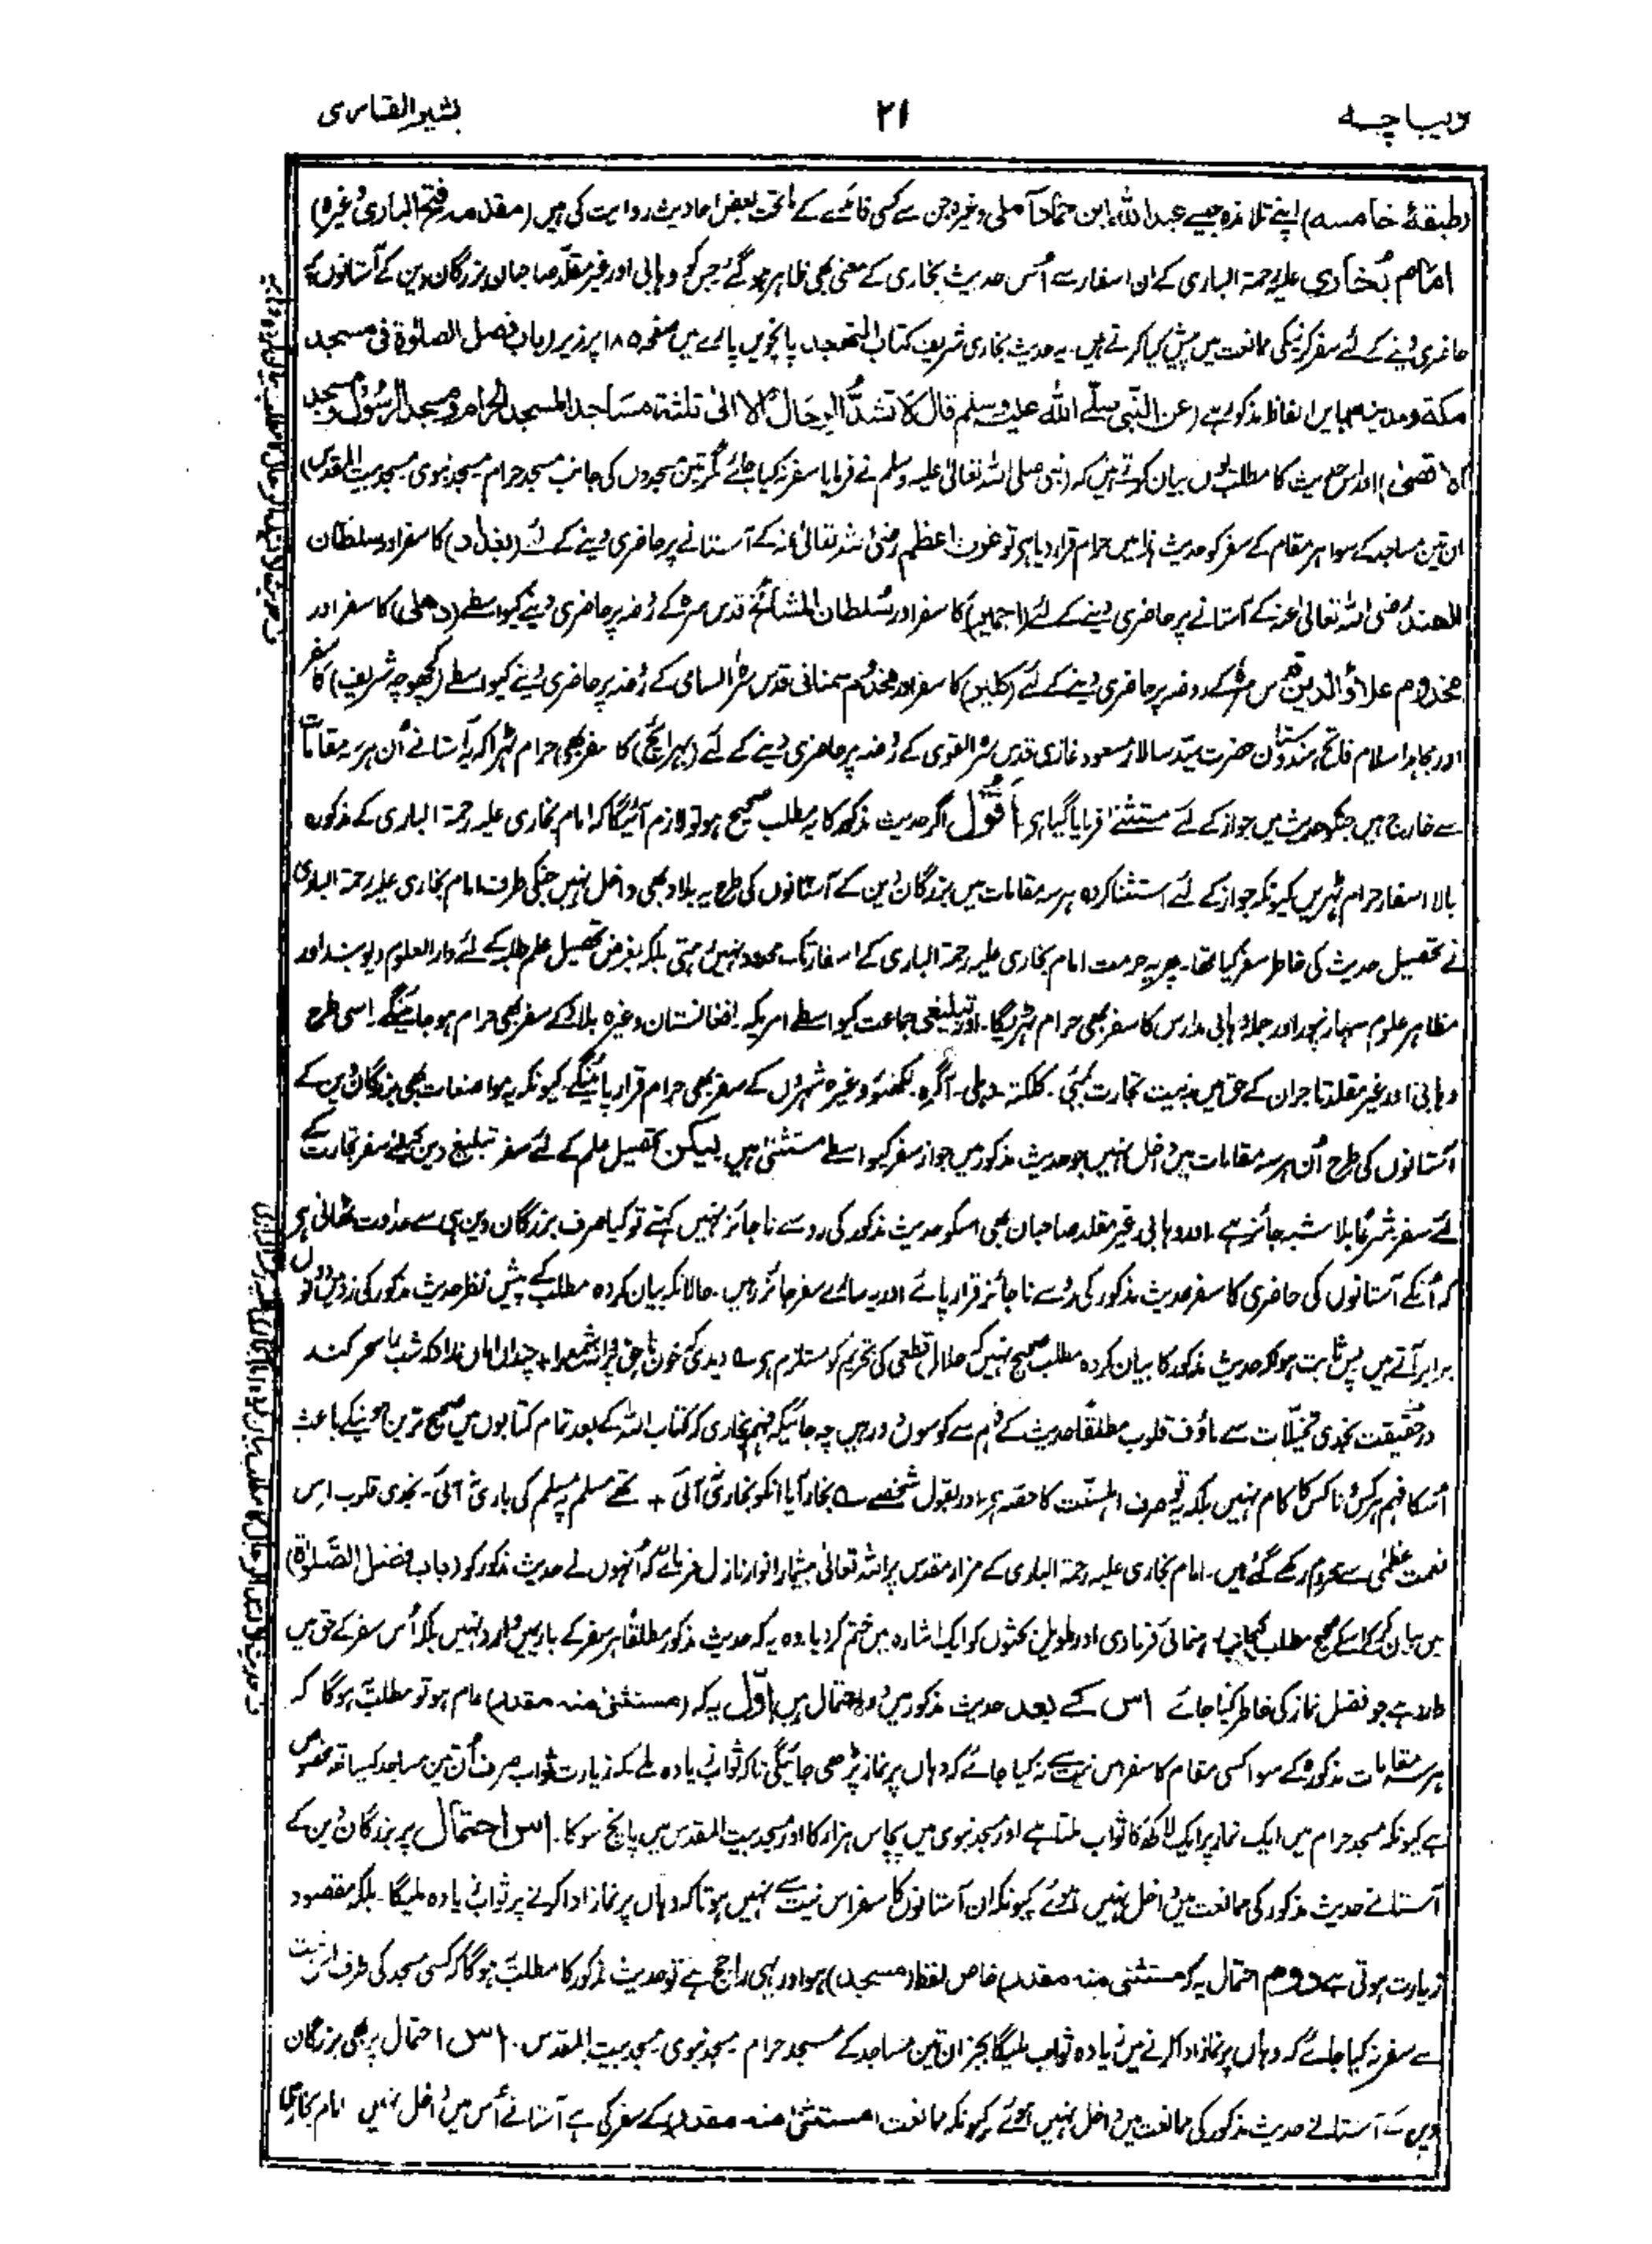 دیباچہ
۲۱
بشیر القاری
(طبقۂ خامسہ) اپنے تلامذہ جیسے عبداللہ ابن حماد آملی وغیرہ جن سے کسی فائدے کے ماتحت بعض احادیث روایت کی ہیں (مقدمہ فتح الباری وغیرہ)
امام بُخاری علیہ رحمۃ الباری کے ان اسفار سے اُس حدیث بخاری کے معنی بھی ظاہر ہو گئے جس کو وہابی اور غیر مقلد صاحبان بزرگان دین کے آستانوں پر
حاضری دینے کے لئے سفر کرنیکی ممانعت میں پیش کیا کرتے ہیں۔ یہ حدیث بخاری شریف کتاب التھجد پانچویں پارے میں صفحہ ۱۸۵ پر زیر (باب فضل الصلوٰۃ فی مسجد
مکۃ ومدینہ) بایں الفاظ مذکور ہے (عن النبی صلے اللہ علیہ وسلم قال لا تشدُّ الرحال الا الیٰ ثلثۃ مساجد المسجد الحرام ومسجد الرسُول ومسجد
الاقصیٰ) اور اس حدیث کا مطلب یوں بیان کرتے ہیں کہ (نبی صلی اللہ تعالیٰ علیہ وسلم نے فرمایا سفر نہ کیا جائے مگر تین مسجدوں کی جانب مسجد حرام مسجد نبوی مسجد بیت المقدس)
ان تین مساجد کے سوا ہر مقام کے سفر کو حدیث ہٰذا میں حرام قرار دیا ہی تو غوث اعظم رضی اللہ تعالیٰ عنہ کے آستانے پر حاضری دینے کے لئے (بغداد) کا سفر اور سلطان
الھند رضی اللہ تعالیٰ عنہ کے آستانے پر حاضری دینے کے لئے (اجمیر) کا سفر اور سُلطان المشائخ قدس سرہ کے روضہ پر حاضری دینے کیواسطے (دھلی) کا سفر اور
مخدوم علاؤالدین قدس سرہ کے روضہ پر حاضری دینے کے لئے (کلیر) کا سفر اور مخدوم سمنانی قدس سرہٗ السامی کے روضہ پر حاضری دینے کیواسطے (کچھوچہ شریف) کا سفر
اور مجاہد اسلام فاتح ہندوستان حضرت سید سالار مسعود غازی قدس سرہ القوی کے روضہ پر حاضری دینے کے لئے (بہرائچ) کا سفر بھی حرام ٹھہرا کہ یہ آستانے اُن ہر سہ مقامات
سے خارج ہیں جنکو حدیث میں جواز کے لئے مستثنےٰ فرمایا گیا ہی اَقُوْلُ اگر حدیث مذکور کا یہ مطلب صحیح ہو تو لازم آئیگا کہ امام بخاری علیہ رحمۃ الباری کے مذکورہ
بالا اسفار حرام ٹھہریں کیونکہ جواز کے لئے استثنا کردہ ہر سہ مقامات میں بزرگان دین کے آستانوں کی طرح یہ بلاد بھی داخل نہیں جنکی طرف امام بخاری علیہ رحمۃ الباری
نے تحصیل حدیث کی خاطر سفر کیا تھا۔ پھر یہ حرمت امام بخاری علیہ رحمۃ الباری کے اسفار تک محدود نہیں رہتی بلکہ بغرض تحصیل علم طلبہ کے لئے دار العلوم دیوبند اور
مظاہر علوم سہارنپور اور جملہ وہابی مدارس کا سفر بھی حرام ٹھہریگا۔ اور تبلیغی جماعت کیواسطے امریکہ افغانستان وغیرہ بلاد کے سفر بھی حرام ہو جائینگے۔ اسی طرح
وہابی اور غیر مقلد تاجران کے حق میں بہ نیت تجارت بمبئی۔ کلکتہ۔ دہلی۔ آگرہ۔ لکھنؤ وغیرہ شہروں کے سفر بھی حرام قرار پائینگے۔ کیونکہ یہ مواضعات بھی بزرگان دین کے
آستانوں کی طرح اُن ہر سہ مقامات میں داخل نہیں جو حدیث مذکور میں جواز سفر کیواسطے مستثنیٰ ہیں۔ لیکن تحصیل علم کے لئے سفر تبلیغ دین کیلئے سفر تجارت کے
لئے سفر شرعًا بلا شبہ جائز ہے۔ اور وہابی غیر مقلد صاحبان بھی اسکو حدیث مذکور کی رو سے ناجائز نہیں کہتے تو کیا صرف بزرگان دین ہی سے عداوت ٹھانی ہی
کہ اُنکے آستانوں کی حاضری کا سفر حدیث مذکور کی رُو سے ناجائز قرار پائے اور یہ سارے سفر جائز رہیں۔ حالانکہ بیان کردہ مطلب کے پیش نظر حدیث مذکور کی زد میں دونوں
برابر آتے ہیں پس ثابت ہوا کہ حدیث مذکور کا بیان کردہ مطلب صحیح نہیں کہ حلال قطعی کی تحریم کو مستلزم ہی ؎ دیدی کہ خون ناحق پروانہ شمع را + چنداں اماں نداد کہ شب را سحر کند
درحقیقت نجدی تخیلات سے ماؤف قلوب مطلقًا حدیث کے فہم سے کوسوں دور ہیں چہ جائیکہ فہم بخاری کہ کتاب اللہ کے بعد تمام کتابوں میں صحیح ترین ہونیکے باعث
اُسکا فہم ہر کس و ناکس کا کام نہیں بلکہ یہ تو صرف اہلسنّت کا حصّہ ہی اور بقول شخصے ؎ بخار آیا انکو بخاری آئی + تھے مسلم پہ مسلم کی باری آئی۔ نجدی قلوب اِس
نعمت عظمیٰ سے محروم رکھے گئے ہیں۔ امام بخاری علیہ رحمۃ الباری کے مزار مقدس پر اللہ تعالیٰ بیشمار انوار نازل فرمائے کہ اُنہوں نے حدیث مذکور کو (باب فضل الصّلوٰۃ)
میں بیان کر کے اسکے صحیح مطلب کیجانب رہنمائی فرمادی اور طویل بحثوں کو ایک اشارہ میں ختم کر دیا۔ وہ یہ کہ حدیث مذکور مطلقًا ہر سفر کے بارے میں وارد نہیں بلکہ اُس سفر کے حق میں
وارد ہے جو فضل نماز کی خاطر کیا جائے اس کے بعد حدیث مذکور میں دو احتمال ہیں اوّل یہ کہ (مستثنیٰ منہ مقدر) عام ہو تو مطلب یہ ہوگا کہ
ہر سہ مقامات مذکورہ کے سوا کسی مقام کا سفر اس نیت سے نہ کیا جائے کہ وہاں پر نماز پڑھی جائیگی تاکہ ثواب زیادہ ملے کہ زیادت ثواب صرف اُن تین مساجد کیساتھ مخصوص
ہے کیونکہ مسجد حرام میں ایک نماز پر ایک لاکھ کا ثواب ملتا ہے اور مسجد نبوی میں پچاس ہزار کا اور مسجد بیت المقدس میں پانچ سو کا۔ اس احتمال پر بزرگان دین کے
آستانے حدیث مذکور کی ممانعت میں داخل نہیں ہوئے کیونکہ ان آستانوں کا سفر اس نیت سے نہیں ہوتا کہ وہاں پر نماز ادا کرنے پر ثواب زیادہ ملیگا۔ بلکہ مقصود
زیارت ہوتی ہے دوم احتمال یہ کہ (مستثنیٰ منہ مقدر) خاص لفظ (مسجد) ہو اور یہی راجح ہے تو حدیث مذکور کا مطلب یہ ہوگا کہ کسی مسجد کی طرف اس نیت
سے سفر نہ کیا جائے کہ وہاں پر نماز ادا کرنے میں زیادہ ثواب ملیگا بجز ان تین مساجد کے مسجد حرام مسجد نبوی مسجد بیت المقدس۔ اس احتمال پر بھی بزرگان
دین کے آستانے حدیث مذکور کی ممانعت میں داخل نہیں ہوئے کیونکہ ممانعت (مستثنیٰ منہ مقدر) کے سفر کی ہے آستانے اُس میں داخل نہیں امام بخاری